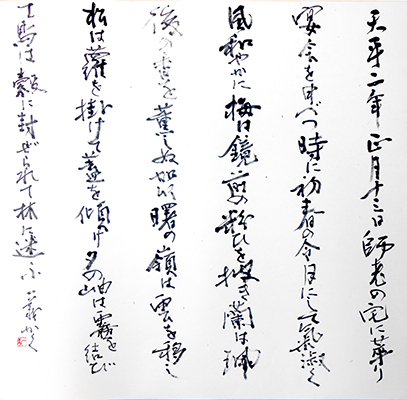 天平二年正月十三日師老の宅に萃り
宴会を申べつ時に初春の令月にして氣淑く
風和やかに梅は鏡前の粉ひを披き蘭は珮
後の香を薫らしぬ加以曙の嶺は雲を移し
松は蘿を掛けて蓋を傾け夕の岫は霧を結び
鳥は縠に封ぜられて林に迷ふ